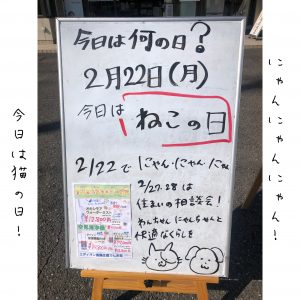 今日は何の日?
2月22日(月)
今日は
ねこの日
2/22で にゃん・にゃん・にゃん
2/27.28は
住まいの相談会!
わんちゃん にゃんちゃんと
快適なくらしを
にゃんにゃんにゃん!
今日は猫の日!